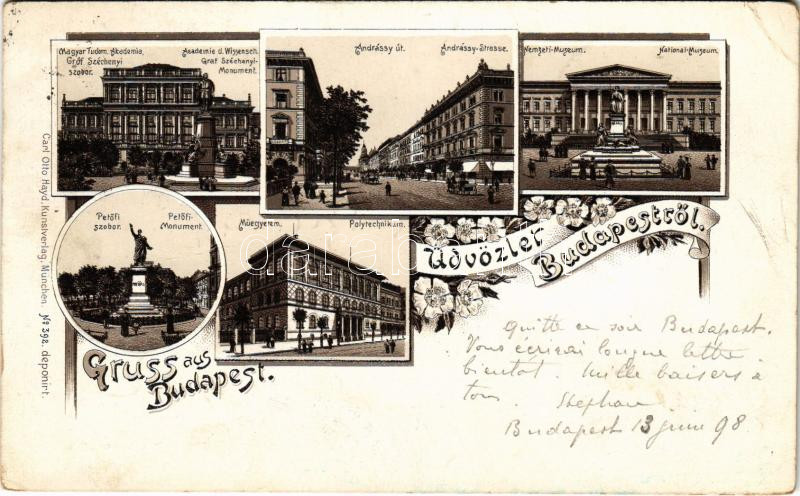 Magyar Tudom. Akadémia,
Gróf Széchenyi
szobor.
Academie d. Wissensch.
Graf Széchenyi-
Monument.
Andrássy út.
Andrássy-Strasse.
Nemzeti-Muzeum.
National-Museum.
Petőfi
szobor.
Petőfi-
Monument.
Müegyetem.
Polytechnikum.
Üdvözlet
Budapestről.
Gruss aus
Budapest.
Carl Otto Hayd, Kunstverlag, München. No 392. deponirt.
darabanth
Quitte ce soir Budapest.
Vous écrirai longue lettre
bientot. Mille baisers a
tous. Stephan
Budapest 13 juin 98